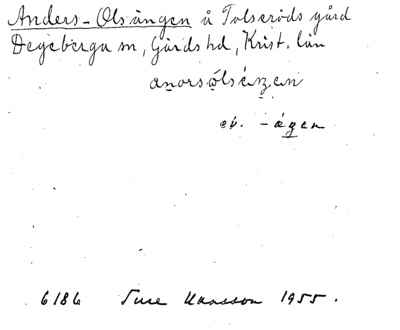 Anders-Olsängen å Tolseröds gård
Degeberga sn, Gärds hd, Krist. län
anorsólsénzen
ev. -ázen
6186 Ture Hansson 1955.